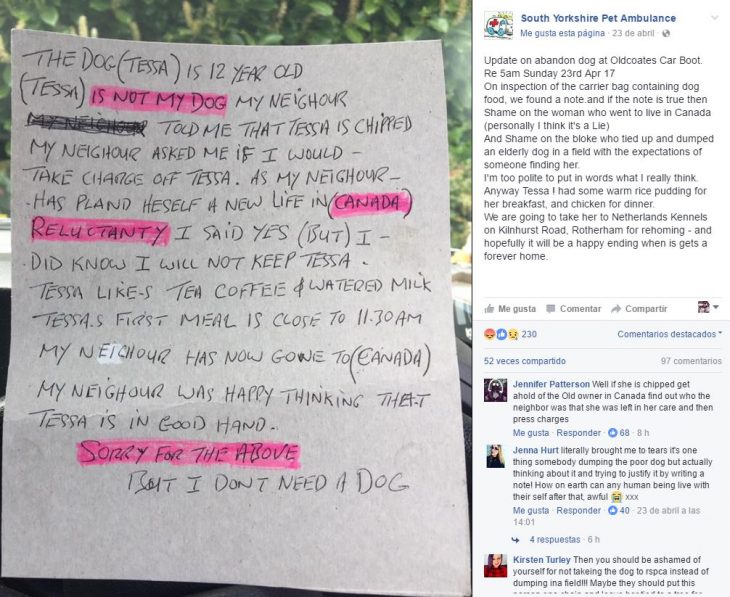 THE DOG (TESSA) IS 12 YEAR OLD
(TESSA) IS NOT MY DOG MY NEIGHOUR
TOLD ME THAT TESSA IS CHIPPED
MY NEIGHOUR ASKED ME IF I WOULD -
TAKE CHARGE OFF TESSA. AS MY NEIGHOUR -
HAS PLAND HESELF A NEW LIFE IN (CANADA)
RELUCTANTY I SAID YES (BUT) I -
DID KNOW I WILL NOT KEEP TESSA.
TESSA LIKE-S TEA COFFEE & WATERED MILK
TESSA.S FIRST MEAL IS CLOSE TO 11.30AM
MY NEIGHOUR HAS NOW GONE TO (CANADA)
MY NEIGHOUR WAS HAPPY THINKING THAT
TESSA IS IN GOOD HAND.
SORRY FOR THE ABOVE
BUT I DONT NEED A DOG
South Yorkshire Pet Ambulance
Me gusta esta página · 23 de abril ·
Update on abandon dog at Oldcoates Car Boot.
Re 5am Sunday 23rd Apr 17
On inspection of the carrier bag containing dog
food, we found a note.and if the note is true then
Shame on the woman who went to live in Canada
(personally I think it's a Lie)
And Shame on the bloke who tied up and dumped
an elderly dog in a field with the expectations of
someone finding her.
I'm too polite to put in words what I really think.
Anyway Tessa ! had some warm rice pudding for
her breakfast, and chicken for dinner.
We are going to take her to Netherlands Kennels
on Kilnhurst Road, Rotherham for rehoming - and
hopefully it will be a happy ending when is gets a
forever home.
Me gusta Comentar Compartir
230 Comentarios destacados
52 veces compartido 97 comentarios
Jennifer Patterson Well if she is chipped get
ahold of the Old owner in Canada find out who the
neighbor was that she was left in her care and then
press charges
Me gusta · Responder · 68 · 8 h
Jenna Hurt literally brought me to tears it's one
thing somebody dumping the poor dog but actually
thinking about it and trying to justify it by writing a
note! How on earth can any human being live with
their self after that, awful 😭 xxx
Me gusta · Responder · 40 · 23 de abril a las
14:01
4 respuestas · 6 h
Kirsten Turley Then you should be ashamed of
yourself for not takeing the dog to rspca instead of
dumping ina field!!! Maybe they should put this